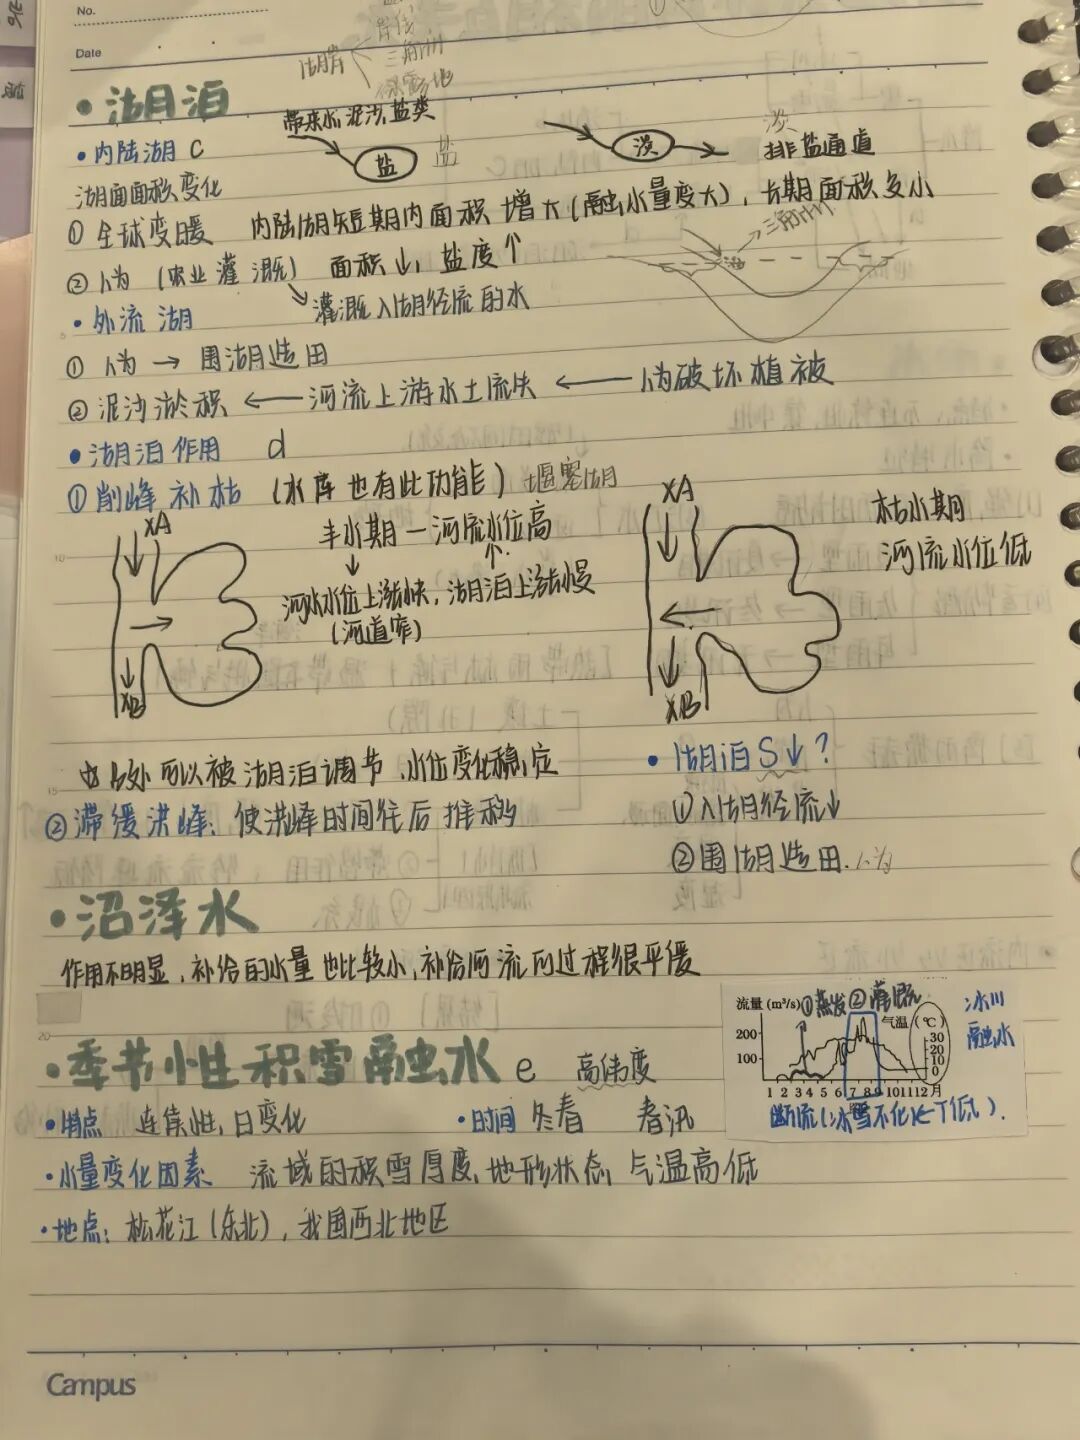 No.
Date
湖岸
岸线
三角洲
①
•湖泊
带来水,泥沙,盐类
盐 盐
淡
淡
排盐通道
•内陆湖 C
湖面面积变化
①全球变暖 内陆湖短期内面积增大(融水量变大),长期面积变小
三角洲
②人为 (农业灌溉) 面积↓,盐度↑
灌溉入湖径流的水
•外流湖
①人为 → 围湖造田
②泥沙淤积 ← 河流上游水土流失 ← 人为破坏植被
•湖泊作用 d
①削峰补枯 (水库也有此功能) 堰塞湖
XA
丰水期一河流水位高
河水水位上涨快,湖泊上涨慢
(河道窄)
XB
XA
枯水期
河流水位低
XB
由B处可以被湖泊调节,水位变化稳定
②滞缓洪峰:使洪峰时间往后推移
•湖泊S↓?
①入湖径流↓
②围湖造田.人为
•沼泽水
作用不明显,补给的水量也比较小,补给河流的过程很平缓
流量(m³/s)
①蒸发②灌溉
气温(℃)
200
100
30
20
10
0
1 2 3 4 5 6 7 8 9 10 11 12月
断流(冰雪不化←T低).
冰川
融水
•季节性积雪融水 e 高纬度
•特点 连续性,日变化
•时间 冬春 春汛
•水量变化因素 流域的积雪厚度,地形状态,气温高低
•地点:松花江(东北),我国西北地区
Campus